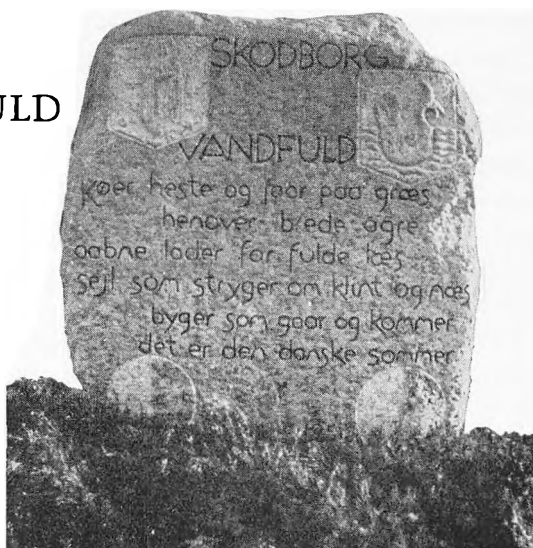 ULD
SKODBORG
VANDFULD
Køer heste og faar paa græs
henover brede agre
aabne lader for fulde læs
sejl som stryger om klint og næs
byger som gaar og kommer
det er den danske sommer